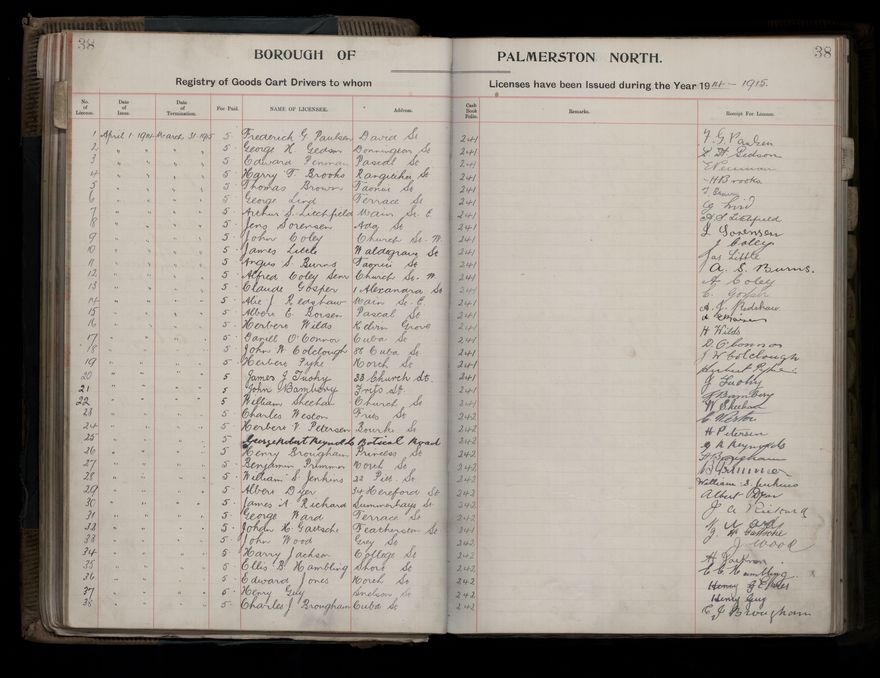 38 38
BOROUGH OF PALMERSTON NORTH.
Registry of Goods Cart Drivers to whom Licenses have been Issued during the Year 1914 - 1915.
No. of License. Date of Issue. Date of Termination. Fee Paid. NAME OF LICENSEE. Address. Cash Book Folio. Remarks. Receipt For License.
1 April 1 1914 March 31 1915 5 Frederick G Paulsen David St 241 F. G. Paulsen
2 " " " " 5 George H Gedson Bonnington St 241 G H Gedson
3 " " " " 5 Edward Penman Pascal St 241 E Penman
4 " " " " 5 Harry T Brooks Rangitikei St 241 H Brooks
5 " " " " 5 Thomas Brown Taonui St 241 T Brown
6 " " " " 5 George Lind Terrace St 241 G Lind
7 " " " " 5 Arthur S. Litchfield Main St. E 241 A S Litchfield
8 " " " " 5 Jens Sorensen Ada St 241 J Sorensen
9 " " " " 5 John Coley Church St. W. 241 J Coley
10 " " " " 5 James Little Waldegrave St 241 Jas Little
11 " " " " 5 Angus S. Burns Taonui St 241 A. S. Burns.
12 " " " " 5 Alfred Coley Senr Church St. W. 241 A Coley
13 " " " " 5 Claude Gosper 1 Alexandra St 241 C. Gosper
14 " " " " 5 Alec J Redshaw Main St. E 241 A. J. Redshaw
15 " " " " 5 Albert E. Pascal St 241
16 " " " " 5 Herbert Wilds Kelvin Grove 241 H Wilds
17 " " " " 5 Daniell O'Connor Cuba St 241 D. O'Connor
18 " " " " 5 John W Colclough 86 Cuba St 241 J W Colclough
19 " " " " 5 Herbert Pyke North St 241 Herbert Pyke
20 " " " " 5 James J Tuohy 33 Church St. 241 J Tuohy
21 " " " " 5 John Bambery 241 J Bambery
22 " " " " 5 William Sheehan Church St 241 W Sheehan
23 " " " " 5 Charles Weston 242 C Weston
24 " " " " 5 Herbert V Petersen Bourke St 242 H Petersen
25 " " " " 5 George Robert Reynolds Botical Road 242 G R Reynolds
26 " " " " 5 Henry Brougham Princess St 242 H Brougham
27 " " " " 5 Benjamin Primmer North St 242 B Primmer
28 " " " " 5 William S Jenkins 22 Pitt St 242 William S. Jenkins
29 " " " " 5 Albert Dyer 54 Hereford St 242 Albert Dyer
30 " " " " 5 James A Richard Summerhays St 242 J A Richard
31 " " " " 5 George Ward Terrace St 242 G Ward
32 " " " " 5 Johan H Gaetsche Featherston St 241 J H Gaetsche
33 " " " " 5 John Wood Grey St 242 J Wood
34 " " " " 5 Harry Jackson College St 242 H Jackson
35 " " " " 5 Ellis B Hambling Shore St 242 E B Hambling.
36 " " " " 5 Edward Jones North St 242
37 " " " " 5 Henry Guy Snelson St 242 Henry Guy
38 " " " " 5 Charles J Brougham Cuba St 242 C J Brougham